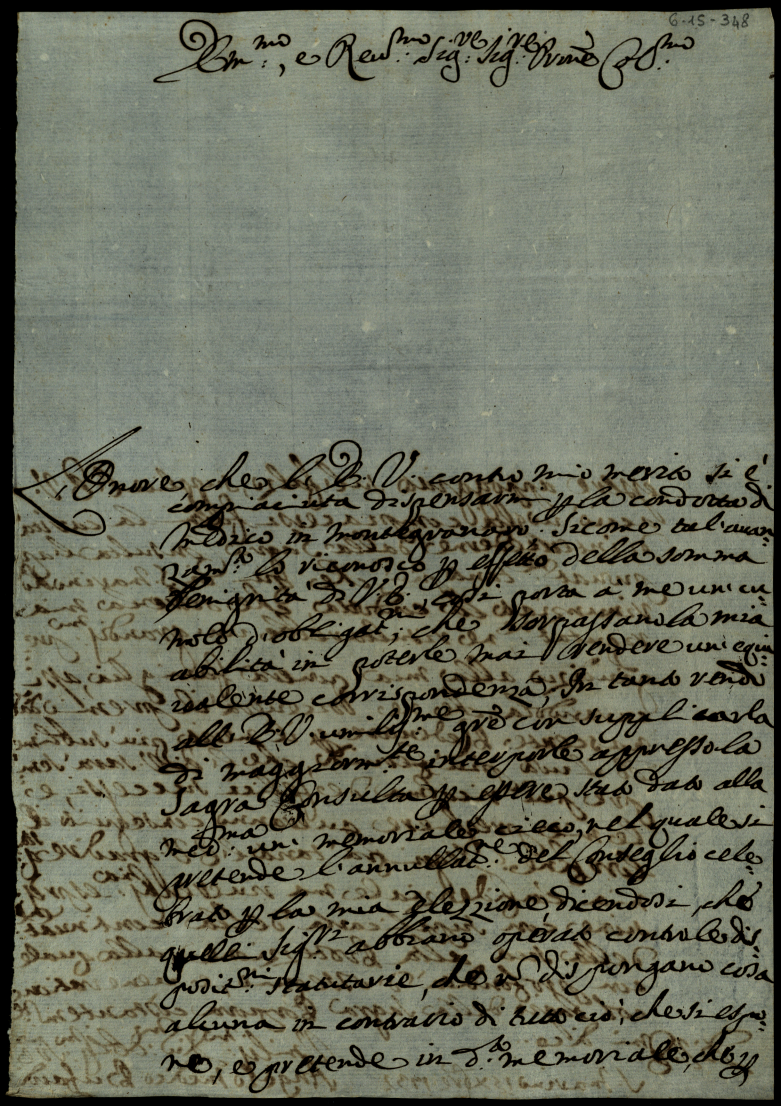 6-15-348
Em.mo, e Reu.mo Sig.re Sig.re Prone
L'Onore che l'E. V. contro mio merito si è
compiaciuta dispensarmi p la condotta di
Medico in Montegranaro. Sicome tal'auan
zam.to lo riconosco p effetto della somma
Benignità di V. E., così porta a me un cu
molo d'obligat.ni, che sorpassano la mia
abilità in poterle mai rendere un'equi
ualente corrispondenza. In tanto rendo
all'E. V. umilis.me gre con supplicarla
di maggiorm.te interporle appresso la
Sagra Consulta p essere stato dato alla
med.ma un memoriale cieco, nel quale si
pretende l'annullat.ne del Conseglio cele
brato p la mia elezzione, dicendosi, che
quelli Sig.ri abbiano operato contro le dis
posit.ni statutarie, che n dispongano cosa
alcuna in contrario di tutto ciò, che si espo
ne, e pretende in d.o memoriale, che p